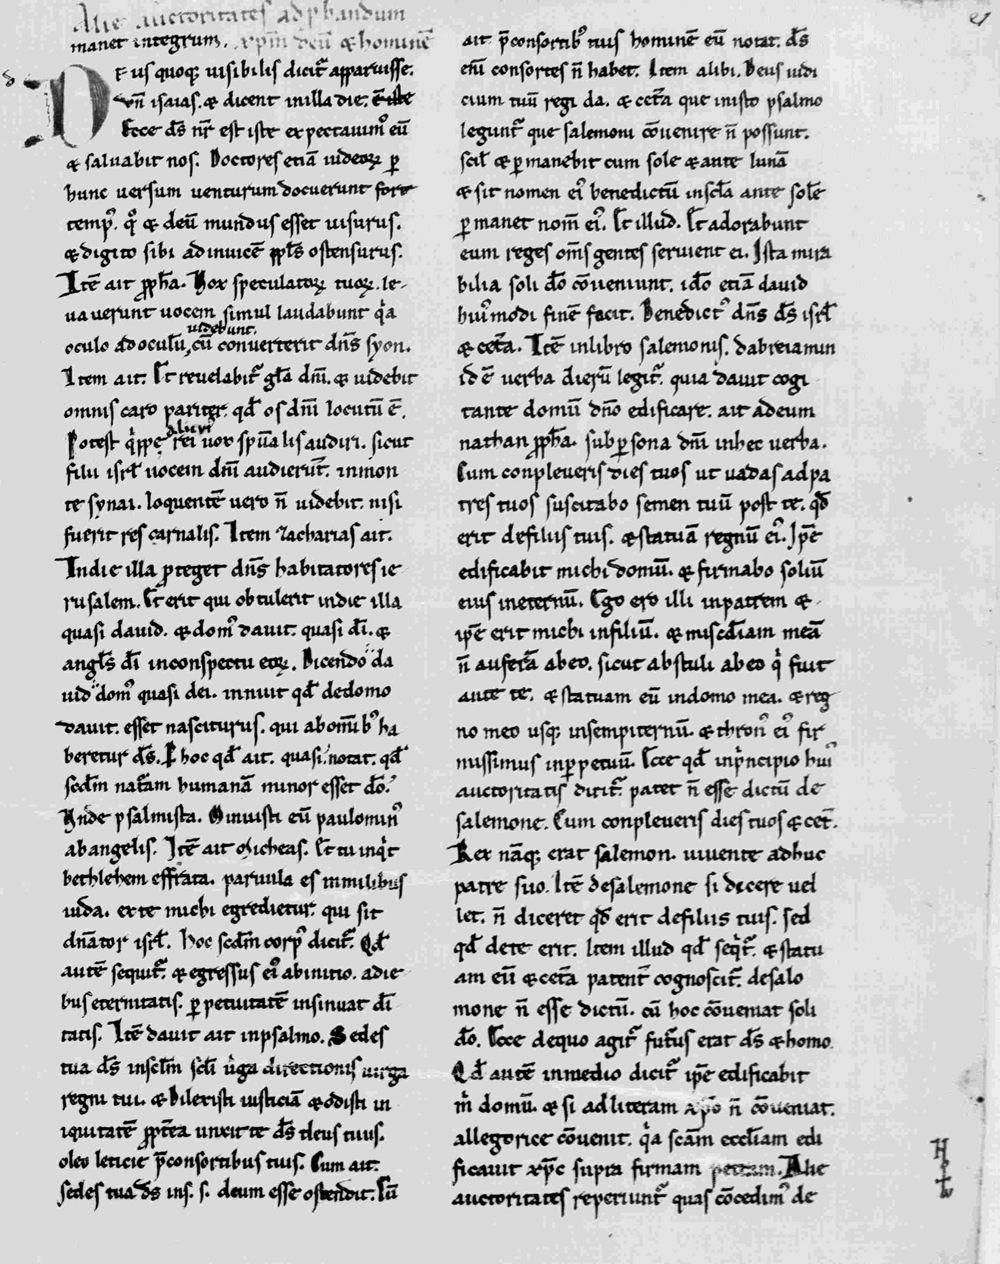 Alie auctoritates ad ꝓbandum
manet integrum. xp̄m deū & hominē
Deus quoq; uisibilis dicit᷑ apparuisse.
vn̄ isaias. & dicent in illa die.
Ecce dš nr̄ est iste expectauimꝰ eū
& saluabit nos. Doctores etiā iudeoꝝ ꝑ
hunc uersum uenturum docuerunt fore
tempꝰ. qͦ & deū mundus esset uisurus.
& digito sibi adinuicē ꝓpl̄s ostensurus.
Itē ait ꝓph̄a. Uox speculatoꝝ tuoꝝ. le-
uauerunt uocem simul laudabunt q̇a
uidebunt.
oculo ad oculū, cū conuerterit dn̄s syon.
Item ait. Et reuelabit᷑ gl̄a dn̄i. & uidebit
omnis caro pariter. qd̄ os dn̄i locutū ē.
alicui
Potest q̇ppe rei uox sp̄ualis audiri. sicut
filii isrl̄ uocem dn̄i audierūt. in mon
te synai. loquentē uero n̄ uidebit. nisi
fuerit res carnalis. Item zacharias ait.
In die illa ꝓteget dn̄s habitatores ie-
rusalem. Et erit qui obtulerit in die illa
quasi dauid. & domꝰ dauit. quasi dī. &
angl̄s dī in conspectu eoꝝ. Dicendo da
uid domꝰ quasi dei. innuit qd̄ de domo
dauit. esset nasciturus. qui ab om̄ibꝰ ha
beretur dš. P hoc qd̄ ait. quasi. notat. qd̄
scdm̄ natūam humanā minor esset dō.
Unde psalmista. Minuisti eū paulominꝰ
ab angelis. Itē ait Micheas. Et tu inq̇t
bethlehem effrata. paruula es in milibus
iuda. ex te michi egredietur. qui sit
dn̄ator isrl̄. Hoc scdm̄ corpꝰ dicit᷑. Qd̄
autē sequit᷑. & egressus eiꝰ ab initio. a die-
bus eternitatis. ꝑpetuitatē insinuat dī-
tatis. Itē dauit ait in psalmo. Sedes
tua dš in scl̄m scl̄i ůga directionis uirga
regni tui. & Dilexisti iusticiā & odisti in
iquitatē ꝓpt̄ea unxit te dš deus tuus.
oleo leticie p̄ consortibus tuis. Cum ait.
sedes tua dš in s. s. deum esse ostendit. Cū
ait p̄ consortibꝰ tuis hominē eū notat. dš
eni᷑ consortes n̄ habet. Item alibi. Deus iudi
cium tuū regi da. & cet̄a que in isto psalmo
legunt᷑ que salemoni cōuenire n̄ possunt.
scil̄ & ꝑmanebit cum sole & ante lunā
& sit nomen eiꝰ benedictū in scl̄a ante solē
ꝑmanet nom̄ eiꝰ. Et illud. Et adorabunt
eum reges om̄s gentes seruient ei. Ista mira
bilia soli dō cōueniunt. idō etiā dauid
huiꝰmodi finē facit. Benedictꝰ dn̄s dš isrl̄
& cet̄a. Itē in libro salemonis. dabreiamin
id ē uerba dierū legit᷑. quia dauit cogi
tante domū dn̄o edificare. ait ad eum
nathan ꝓph̄a. sub ꝑsona dn̄i in hec uerba.
Cum conpleueris dies tuos ut uadas ad pa
tres tuos suscitabo semen tuū post te. qd̄
erit de filiis tuis. & statuā regnū eiꝰ. Ip̄e
edificabit michi domū. & firmabo soliū
eius in eternū. Ego ero illi in patrem &
ip̄e erit michi in filiū. & mis̄cdiam meā
n̄ auferā ab eo. sicut abstuli ab eo q̇ fuit
ante te. & statuam eū in domo mea. & reg
no meo usq; in sempiternū. & thronꝰ eiꝰ fir
missimus in ꝑpetuū. Ecce qd̄ in ṗncipio huiꝰ
auctoritatis dicit᷑. patet n̄ esse dictū de
salemone. Cum conpleueris dies tuos & cet̄.
Rex nāq; erat salemon. uiuente adhuc
patre suo. Itē de salemone si dicere uel
let. n̄ diceret qd̄ erit de filiis tuis. sed
qd̄ de te erit. Item illud qd̄ seq̇t᷑. & statu
am eū & cet̄a patent᷑ cognoscit᷑. de salo
mone n̄ esse dictū. cū hoc cōueniat soli
dō. Ecce de quo agit᷑ fut᷑us erat dš & homo.
Qd̄ autē in medio dicit᷑ ip̄e edificabit
m̄ domū. & si ad literam xp̄o n̄ cōueniat.
allegorice cōuenit. q̇a sc̄am eccl̄iam edi
ficauit xp̄c supra firmam petram. Alie
auctoritates reperiunt᷑ quas cōcedimꝰ de